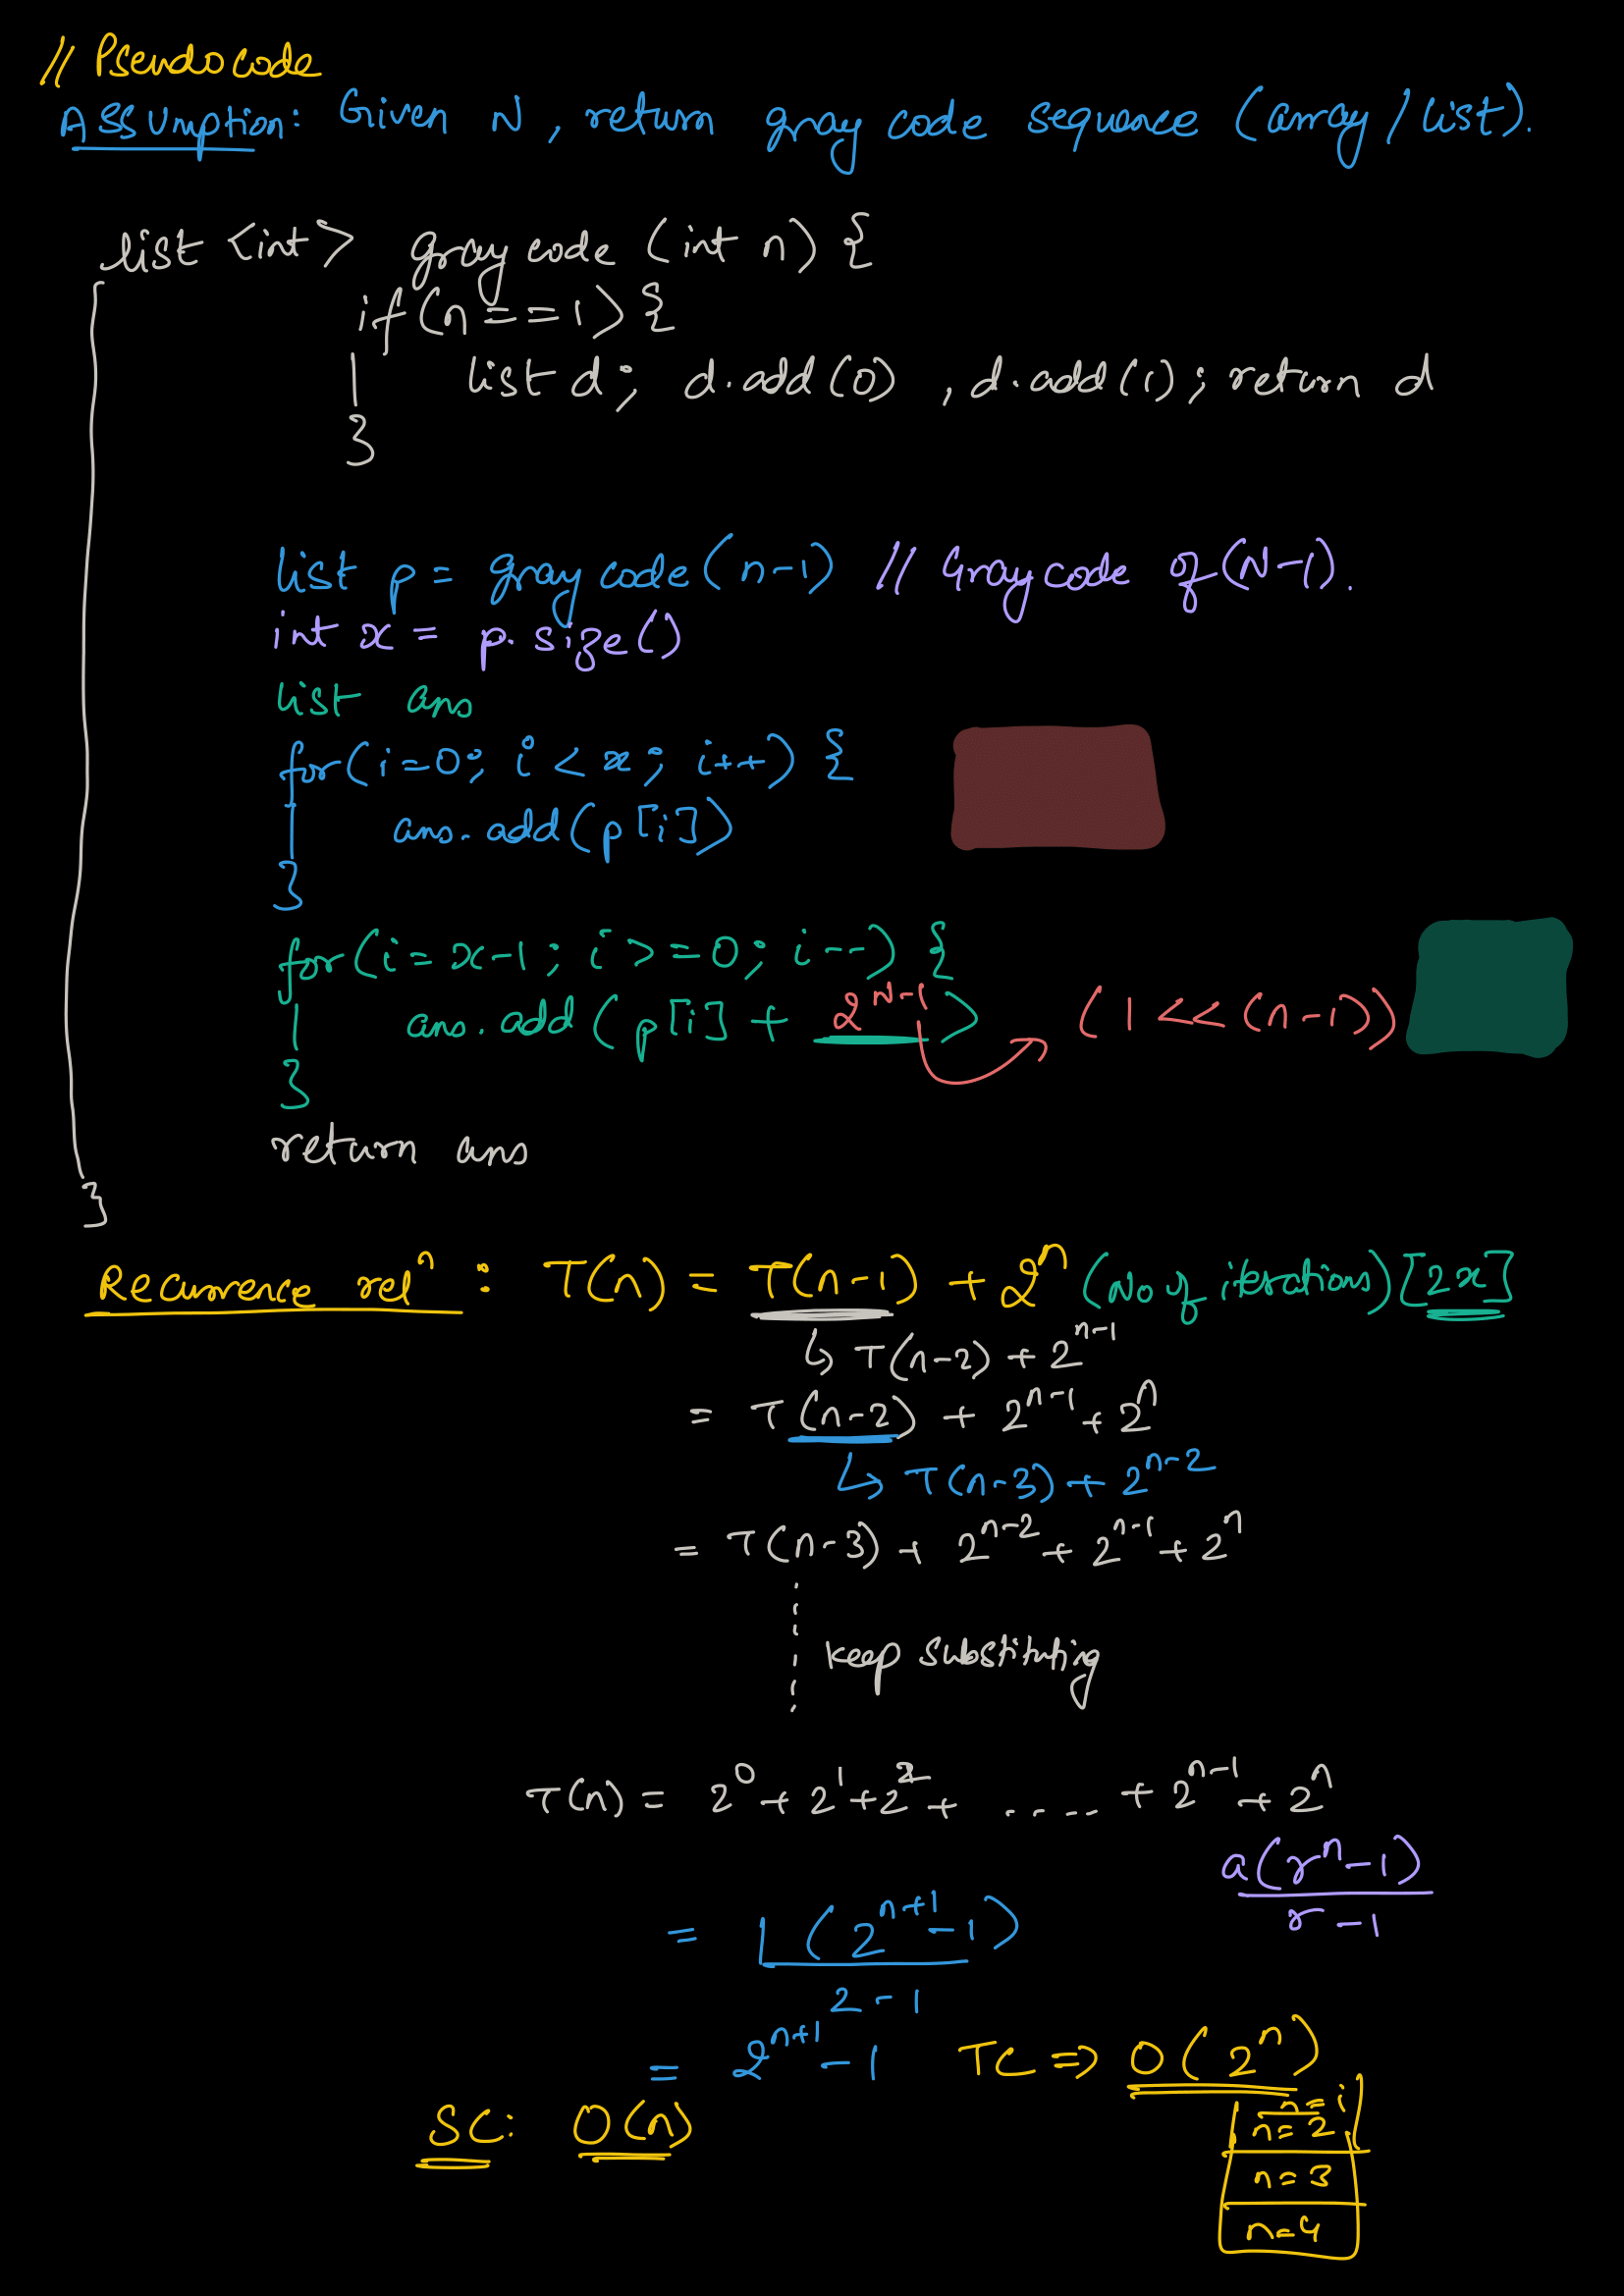 // Pseudocode
Assumption: Given N, return gray code sequence (array/list).
list <int> gray code (int n) {
if(n==1) {
list d; d.add(0), d.add(1); return d
}
list p = gray code(n-1) // Gray code of (N-1).
int x = p.size()
list ans
for(i=0; i<x; i++) {
ans.add(p[i])
}
for(i=x-1; i>=0; i--) {
ans.add(p[i] + 2^{N-1}) (1<<(n-1))
}
return ans
}
Recurrence relⁿ : T(n) = T(n-1) + 2ⁿ (No of iterations) [2x]
↳ T(n-2) + 2^{n-1}
= T(n-2) + 2^{n-1} + 2ⁿ
↳ T(n-3) + 2^{n-2}
= T(n-3) + 2^{n-2} + 2^{n-1} + 2ⁿ
keep substituting
T(n) = 2⁰ + 2¹ + 2² + ..... + 2^{n-1} + 2ⁿ
a(rⁿ-1)
r-1
= 1(2^{n+1}-1)
2-1
= 2^{n+1}-1 TC => O(2ⁿ)
SC: O(n)
n=1
n=2
n=3
n=4